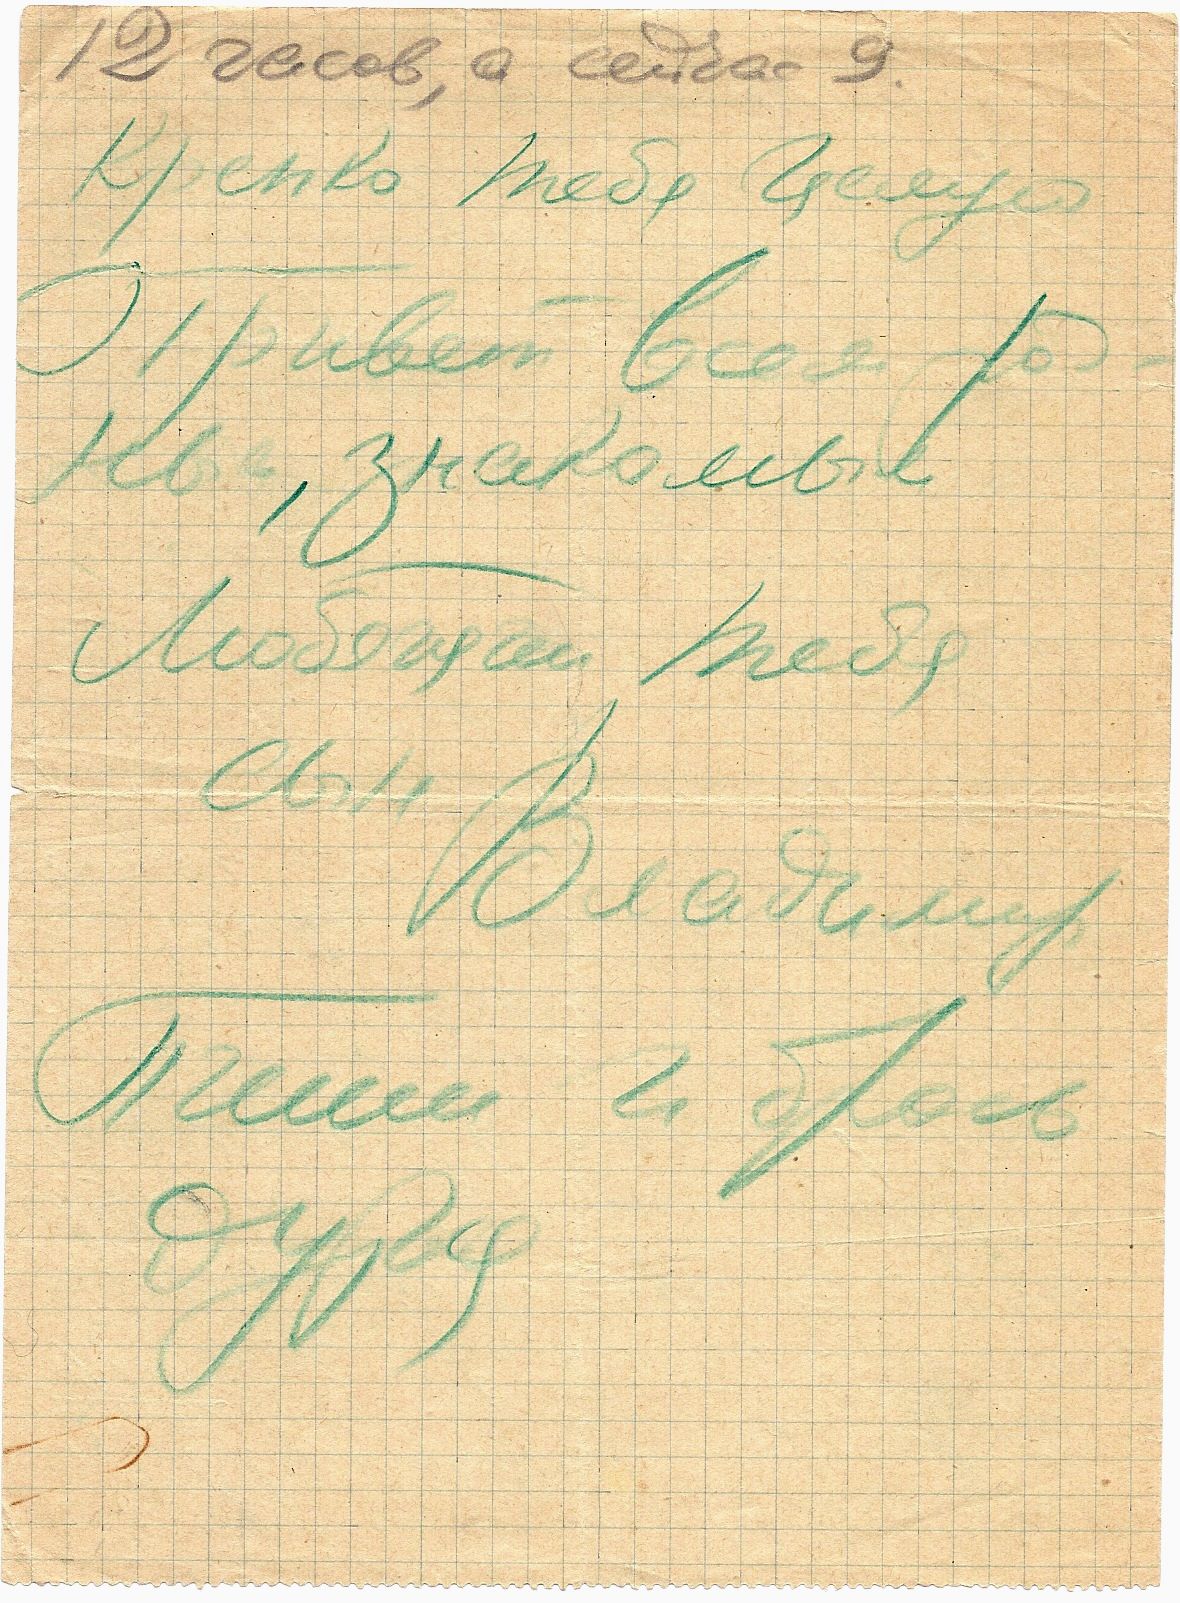 12 часов, а сейчас 9.
Крепко тебя целую
Привет всем род-
ным, знакомым
Любящий тебя
сын Владимир
Пиши и брось